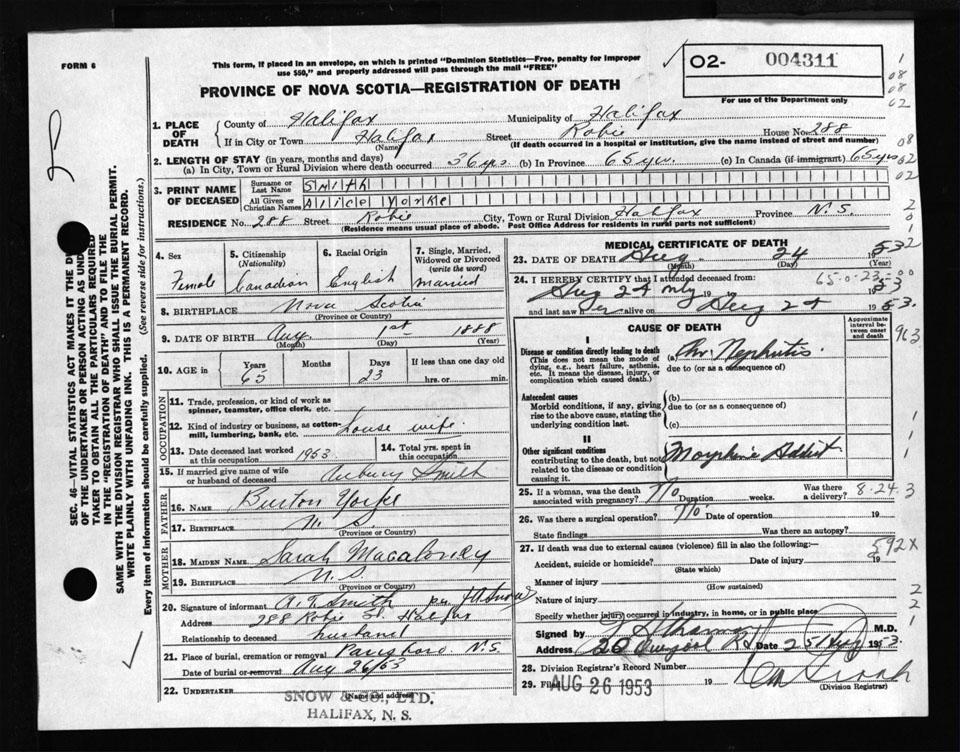 FORM 6
This form, if placed in an envelope, on which is printed "Dominion Statistics—Free, penalty for improper
use $50," and properly addressed will pass through the mail "FREE"
O2- 004311
For use of the Department only
PROVINCE OF NOVA SCOTIA—REGISTRATION OF DEATH
1. PLACE OF DEATH
County of Halifax Municipality of Halifax
If in City or Town Halifax (Name) Street Robie House No. 288
(If death occurred in a hospital or institution, give the name instead of street and number)
2. LENGTH OF STAY (in years, months and days)
(a) In City, Town or Rural Division where death occurred 36 yrs. (b) In Province 65 yrs. (c) In Canada (if immigrant) 65 yrs
3. PRINT NAME OF DECEASED
Surname or Last Name Smith
All Given or Christian Names Alice Yorke
RESIDENCE No. 288 Street Robie City, Town or Rural Division Halifax Province N.S.
(Residence means usual place of abode. Post Office Address for residents in rural parts not sufficient)
4. Sex Female
5. Citizenship (Nationality) Canadian
6. Racial Origin English
7. Single, Married, Widowed or Divorced (write the word) married
8. BIRTHPLACE Nova Scotia
(Province or Country)
9. DATE OF BIRTH Aug 1st 1888
(Month) (Day) (Year)
10. AGE in Years 65 Months Days 23 If less than one day old
hrs. or min.
OCCUPATION
11. Trade, profession, or kind of work as
spinner, teamster, office clerk, etc.
12. Kind of industry or business, as cotton-
mill, lumbering, bank, etc. House wife
13. Date deceased last worked at this occupation 1953
14. Total yrs. spent in this occupation
15. If married give name of wife
or husband of deceased Aubrey Smith
FATHER
16. NAME Burton Yorke
17. BIRTHPLACE N.S.
(Province or Country)
MOTHER
18. MAIDEN NAME Sarah Macaloney
19. BIRTHPLACE N.S.
(Province or Country)
20. Signature of informant A.T. Smith per J A Snow
Address 288 Robie St. Halifax
Relationship to deceased husband
21. Place of burial, cremation or removal Parrsboro N.S.
Date of burial or removal Aug 26/53
22. UNDERTAKER (Name and address)
SNOW & CO., LTD.
HALIFAX, N. S.
MEDICAL CERTIFICATE OF DEATH
23. DATE OF DEATH Aug. 24 1953
(Month) (Day) (Year)
24. I HEREBY CERTIFY that I attended deceased from:
Aug 24 only 19 53
and last saw her alive on Aug 24 1953.
65-0-23-00
CAUSE OF DEATH
Approximate interval between onset and death
I
Disease or condition directly leading to death
(This does not mean the mode of
dying, e.g., heart failure, asthenia,
etc. It means the disease, injury, or
complication which caused death.)
(a) Chr. Nephritis
due to (or as a consequence of)
Antecedent causes
Morbid conditions, if any, giving
rise to the above cause, stating the
underlying condition last.
(b)
due to (or as a consequence of)
(c)
II
Other significant conditions
contributing to the death, but not
related to the disease or condition
causing it.
Morphine Addict
25. If a woman, was the death
associated with pregnancy? No Duration weeks. Was there a delivery?
8-24-3
26. Was there a surgical operation? No Date of operation 19
State findings Was there an autopsy?
27. If death was due to external causes (violence) fill in also the following:—
592X
Accident, suicide or homicide? Date of injury 19
(State which)
Manner of injury
(How sustained)
Nature of injury
Specify whether injury occurred in industry, in home, or in public place
Signed by M.D.
Address Date 25 Aug 1953
28. Division Registrar's Record Number
29. Filed AUG 26 1953 19
(Division Registrar)
SEC. 46—VITAL STATISTICS ACT MAKES IT THE DUTY
OF THE UNDERTAKER OR PERSON ACTING AS UNDER
TAKER TO OBTAIN ALL THE PARTICULARS REQUIRED
IN THE "REGISTRATION OF DEATH" AND TO FILE THE
SAME WITH THE DIVISION REGISTRAR WHO SHALL ISSUE THE BURIAL PERMIT.
WRITE PLAINLY WITH UNFADING INK. THIS IS A PERMANENT RECORD.
Every item of information should be carefully supplied. (See reverse side for instructions.)